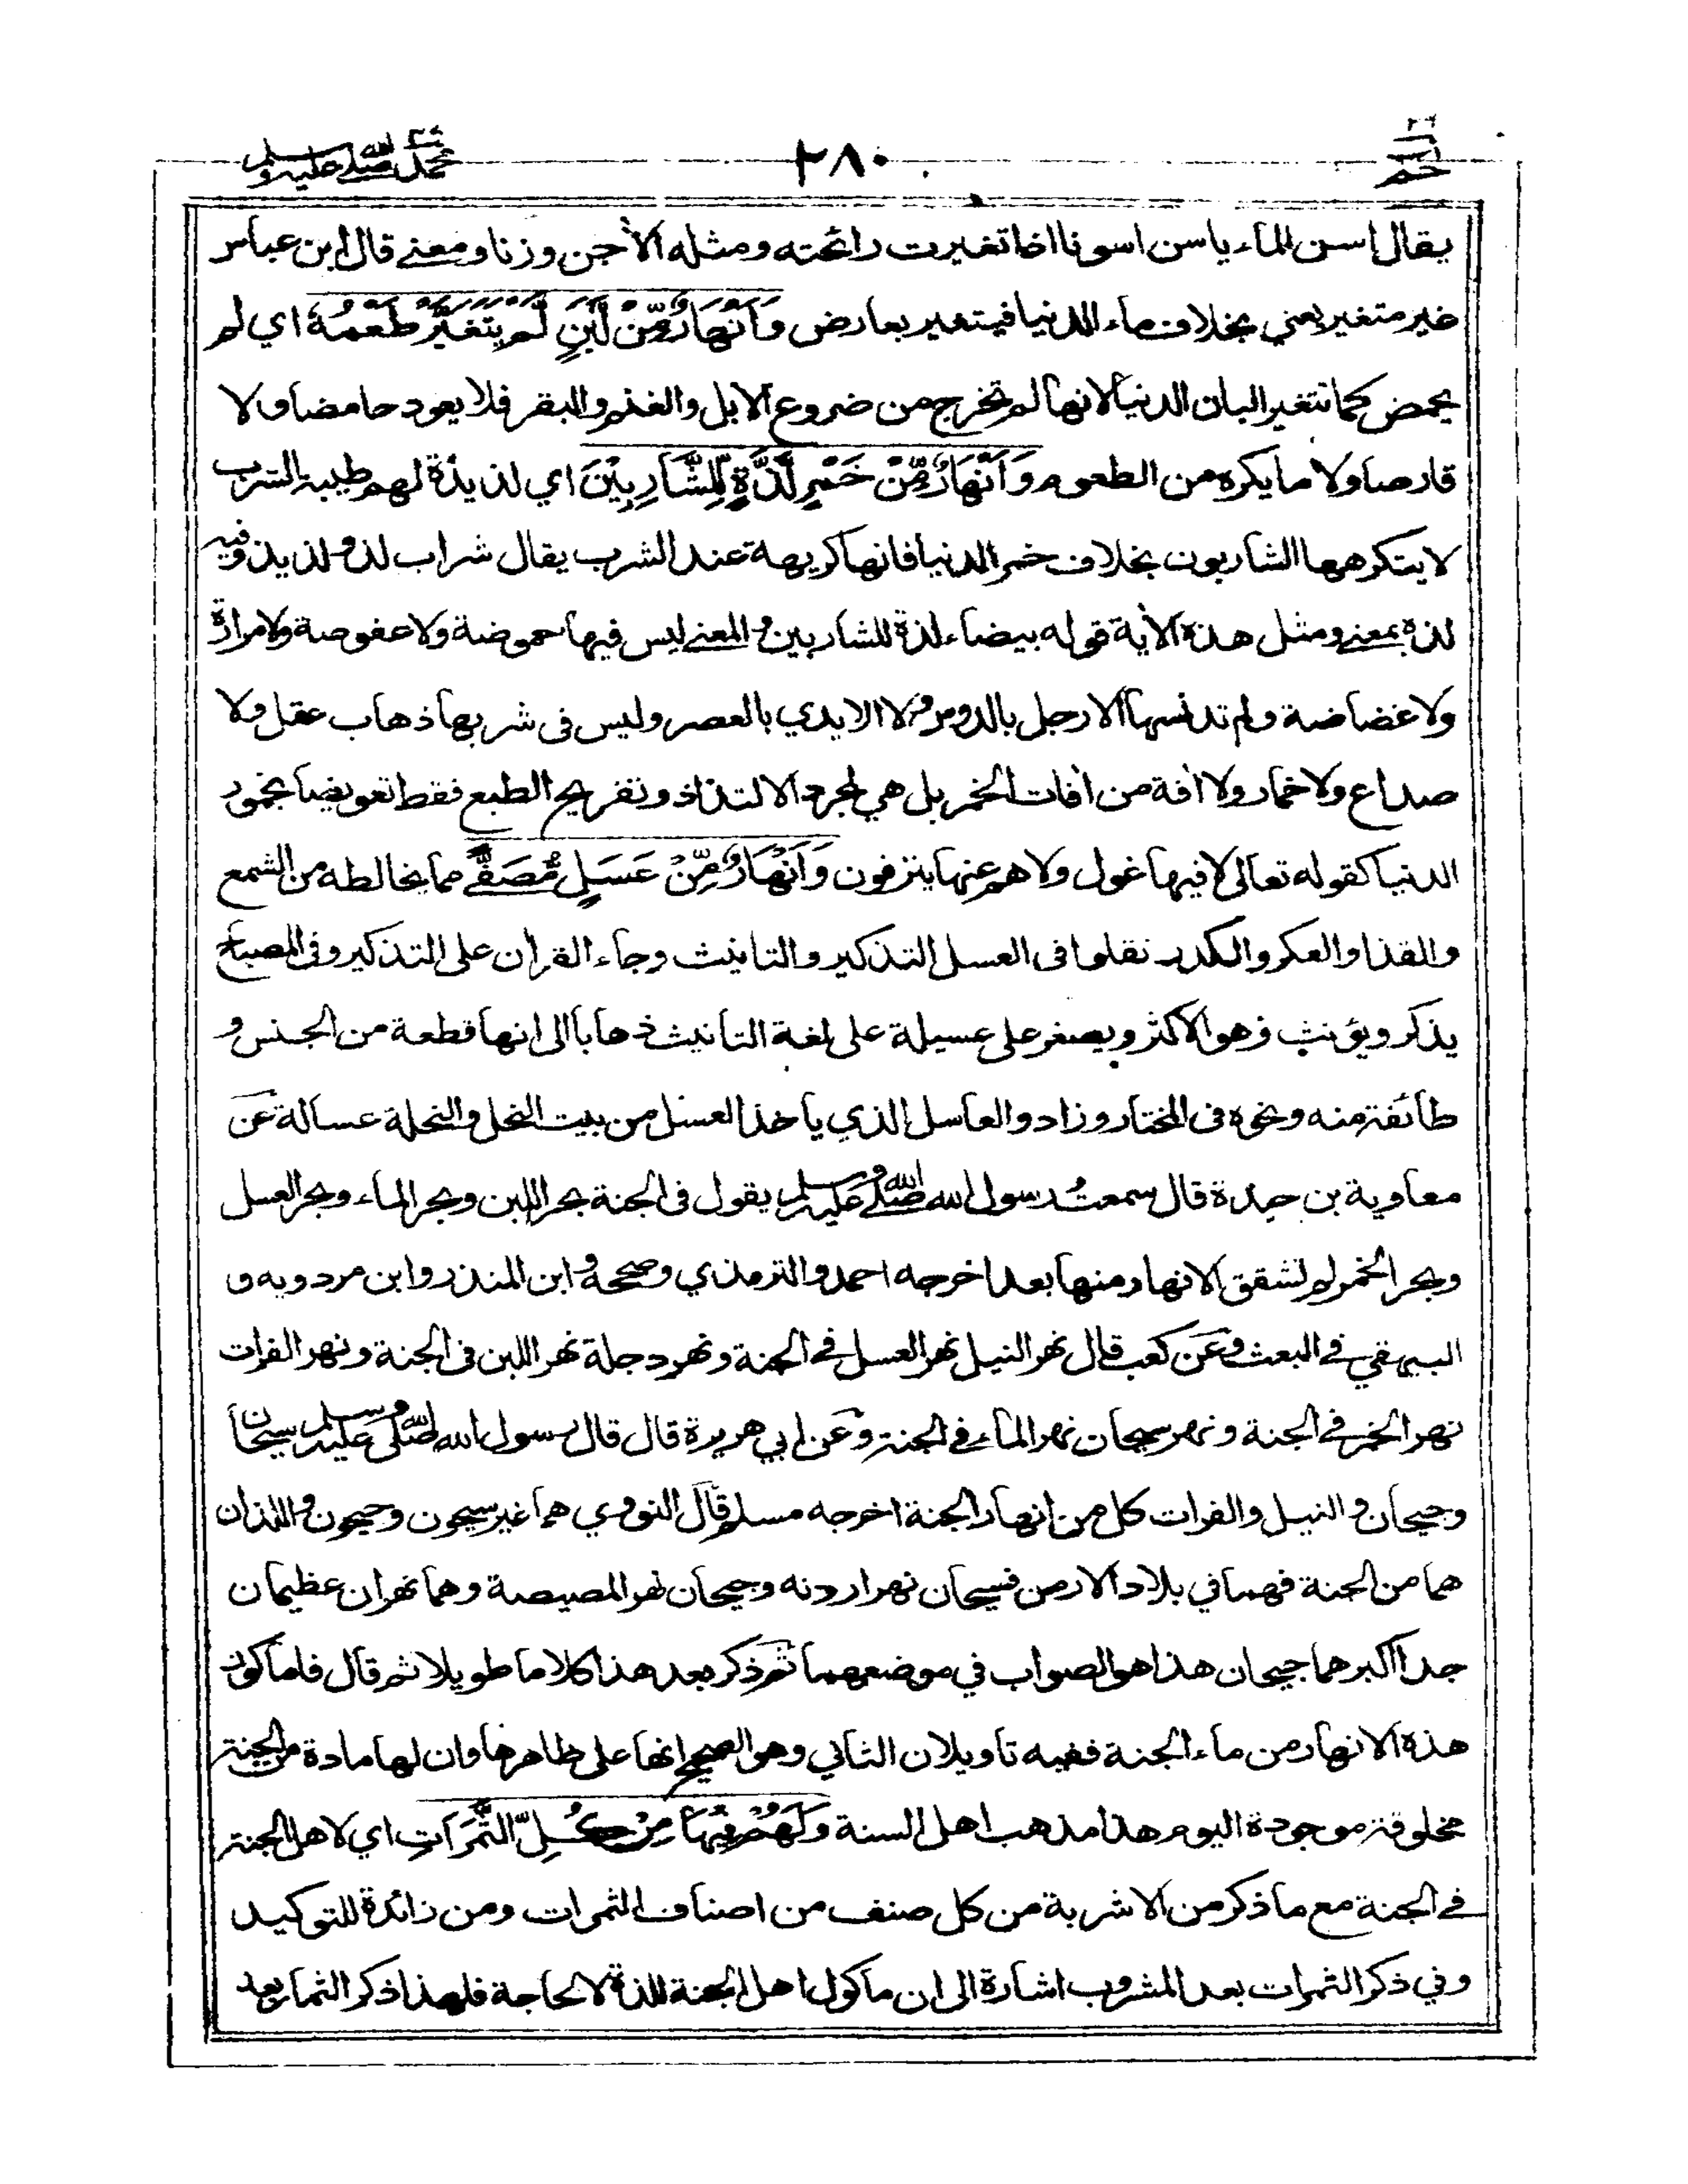 حم ٢٦
٢٨٠
محمد صلى الله عليه وسلم ٤٧
يقال اسن الماء ياسن اسونا اذا تغيرت رائحته ومثله الأجن وزنا ومعنے قال ابن عباس
غير متغير يعني بخلاف ماء الدنيا فيتغير بعارض وَاَنْهَارٌ مِّنْ لَّبَنٍ لَّمْ يَتَغَيَّرْ طَعْمُهُ اي لم
يحمض كما تتغير البان الدنيا لانها لم تخرج من ضروع الابل والغنم والبقر فلا يعود حامضا ولا
قارصا ولا ما يكره من الطعوم وَاَنْهَارٌ مِّنْ خَمْرٍ لَّذَّةٍ لِّلشَّارِبِيْنَ اي لذيذة لهم طيبة الشرب
لا يتكرهها الشاربون بخلاف خمر الدنيا فانها كريهة عند الشرب يقال شراب لذ ولذيذ وفيه
لذة بمعنے ومثل هذه الأية قوله بيضاء لذة للشاربين والمعنے ليس فيها حموضة ولا عفوصة ولا مرارة
ولا غضاضة ولم تدنسها الارجل بالدوس ولا الايدي بالعصر وليس في شربها ذهاب عقل ولا
صداع ولا خمار ولا أفة من أفات الخمر بل هي لمجرد الالتذاذ وتفريح الطبع فقط تعويضا بخمور
الدنيا كقوله تعالى لا فيها غول ولا هم عنها ينزفون وَاَنْهَارٌ مِّنْ عَسَلٍ مُّصَفًّے مما يخالطه من الشمع
والقذا والعكر والكدر نقلوا في العسل التذكير والتانيث وجاء القرأن على التذكير وفي المصباح
يذكر ويؤنث وهو الاكثر ويصغر على عسيلة على لغة التأنيث ذهابا الى انها قطعة من الجنس و
طائفة منه ونحوه في المختار وزاد والعاسل الذي ياخذ العسل من بيت النحل والنحلة عسالة عَن
معاوية بن حيدة قال سمعت رسول الله صلے الله عليه وسلم يقول في الجنة بحر اللبن وبحر الماء وبحر العسل
وبحر الخمر ثم تشقق الانهار منها بعد اخرجه احمد والترمذي وصححه و ابن المنذر وابن مردويه و
البيهقي في البعث وعَن كعب قال نهر النيل نهر العسل في الجنة ونهر دجلة نهر اللبن في الجنة ونهر الفرات
نهر الخمر في الجنة ونهر سيحان نهر الماء في الجنة وعَن ابي هريرة قال قال رسول الله صلى الله عليه وسلم سيحان
وجيحان والنيل والفرات كل من انهار الجنة اخرجه مسلم قال النووي هما غير سيحون وجيحون واللذان
هما من الجنة فهما في بلاد الارمن فسيحان نهر اردنه وجيحان نهر المصيصة وهما نهران عظيمان
جدا اكبرهما جيحان هذا هو الصواب في موضعهما ثم ذكر بعد هذا كلاما طويلا ثم قال فاما كون
هذه الانهار من ماء الجنة ففيه تاويلان الثاني وهو الصحيح انها على ظاهرها وان لها مادة من الجنة
مخلوقة موجودة اليوم هذا مذهب اهل السنة وَلَهُمْ فِيْهَا مِنْ كُلِّ الثَّمَرَاتِ اي لاهل الجنة
في الجنة مع ما ذكر من الاشربة من كل صنف من اصناف الثمرات ومن زائدة للتوكيد
وفي ذكر الثمرات بعد المشروب اشارة الى ان ماكول اهل الجنة للذة لا لحاجة فلهذا ذكر الثمار بعد